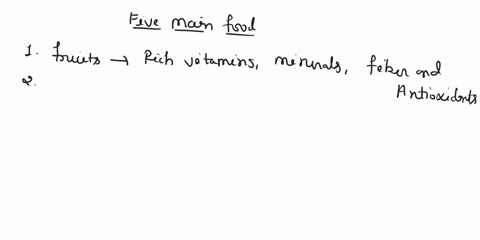 Five main food
1. fruits → Rich vitamins, minerals, fiber and
Antioxidents
2.